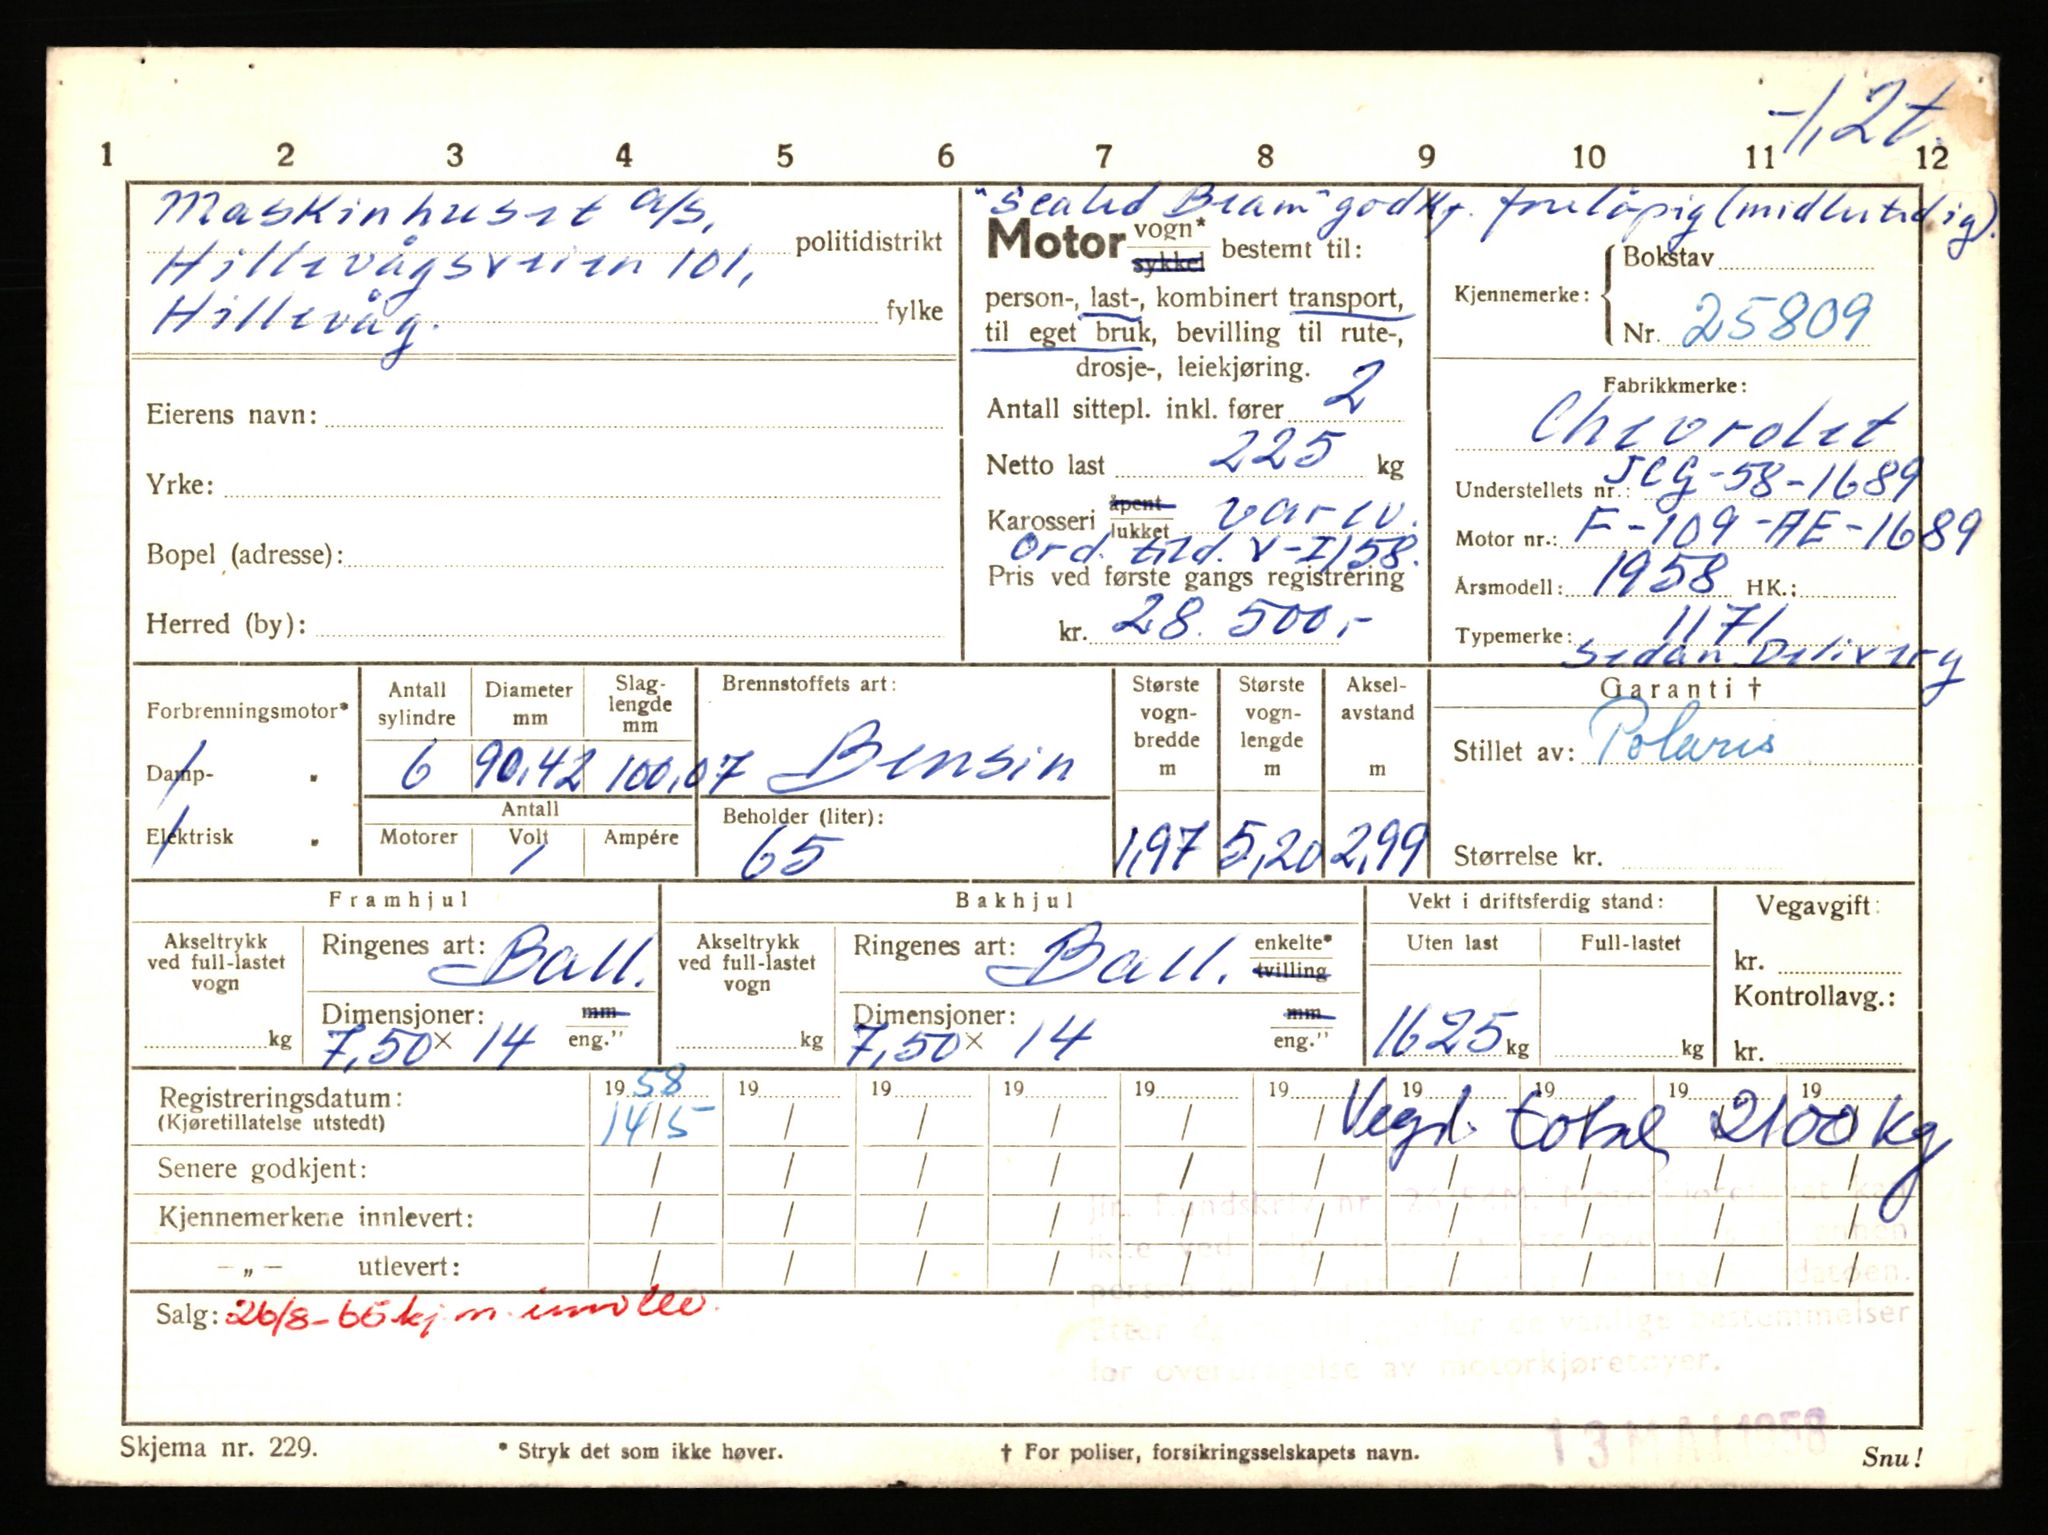 -1,2t.
1 2 3 4 5 6 7 8 9 10 11 12
Maskinhuset A/S,
politidistrikt
Hillevågsveien 101,
Hillevåg.
fylke
Eierens navn:
Yrke:
Bopel (adresse):
Herred (by):
"Sealed Beam" godkj. foreløpig (midlertidig).
Motor vogn*
sykkel
bestemt til:
person-, last-, kombinert transport,
til eget bruk, bevilling til rute-,
drosje-, leiekjøring.
Antall sittepl. inkl. fører 2
Netto last 225 kg
Karosseri åpent
lukket
varev.
Ord. tild. V-I/58.
Pris ved første gangs registrering
kr. 28.500,-
Kjennemerke: Bokstav
Nr. 25809
Fabrikkmerke:
Chevrolet
Understellets nr.: JCG-58-1689
Motor nr.: F-109-AE-1689
Årsmodell: 1958 HK.:
Typemerke: 1171
Sedan Delivery
Forbrenningsmotor*
Damp- "
Elektrisk "
Antall sylindre
Diameter mm
Slag-lengde mm
6 90,42 100,07
Antall
Motorer Volt Ampére
Brennstoffets art:
Bensin
Beholder (liter):
65
Største vogn-bredde m
1,97
Største vogn-lengde m
5,20
Aksel-avstand m
2,99
Garanti †
Stillet av: Polaris
Størrelse kr.
Framhjul
Akseltrykk
ved full-lastet
vogn
kg
Ringenes art: Ball.
Dimensjoner: mm
7,50 x 14 eng."
Bakhjul
Akseltrykk
ved full-lastet
vogn
kg
Ringenes art: Ball. enkelte*
tvilling
Dimensjoner: mm
7,50 x 14 eng."
Vekt i driftsferdig stand:
Uten last Full-lastet
1625 kg kg
Vegavgift:
kr.
Kontrollavg.:
kr.
Registreringsdatum: 19 58 19 19 19 19 19 19 19 19 19
(Kjøretillatelse utstedt) 14/5 / / / / / Vegd. total 2100 kg
Senere godkjent: / / / / / / / / / /
Kjennemerkene innlevert: / / / / / / / / / /
— „ — utlevert: / / / / / / / / / /
Salg: 26/8-65 kj.m. innlev.
for de vanlige bestemmelser
for overdragelse av motorkjøretøyer.
13 MAI 1958
Skjema nr. 229.
* Stryk det som ikke høver.
† For poliser, forsikringsselskapets navn.
Snu!